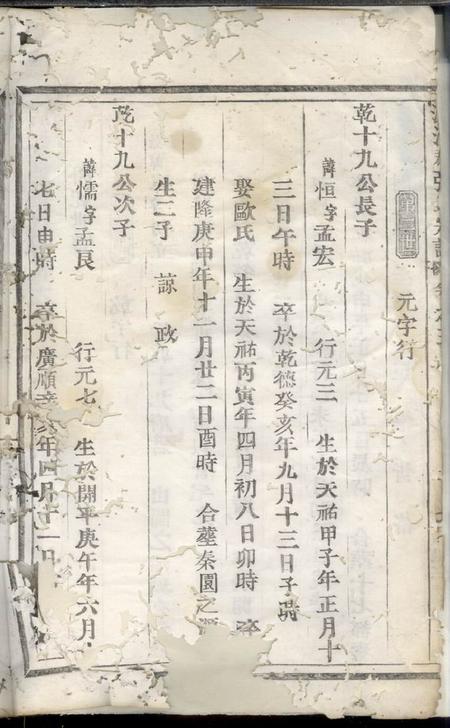 元字行
乾十九公長子
諱恒字孟宏 行元三 生於天祐甲子年正月十
三日午時 卒於乾德癸亥年九月十三日子時
娶歐氏 生於天祐丙寅年四月初八日卯時 卒
建隆庚申年十一月廿二日酉時 合塟秦園之
生二子 諒 政
乾十九公次子
諱懦字孟良 行元七 生於開平庚午年六月
七日申時 卒於廣順辛亥年四月十一日